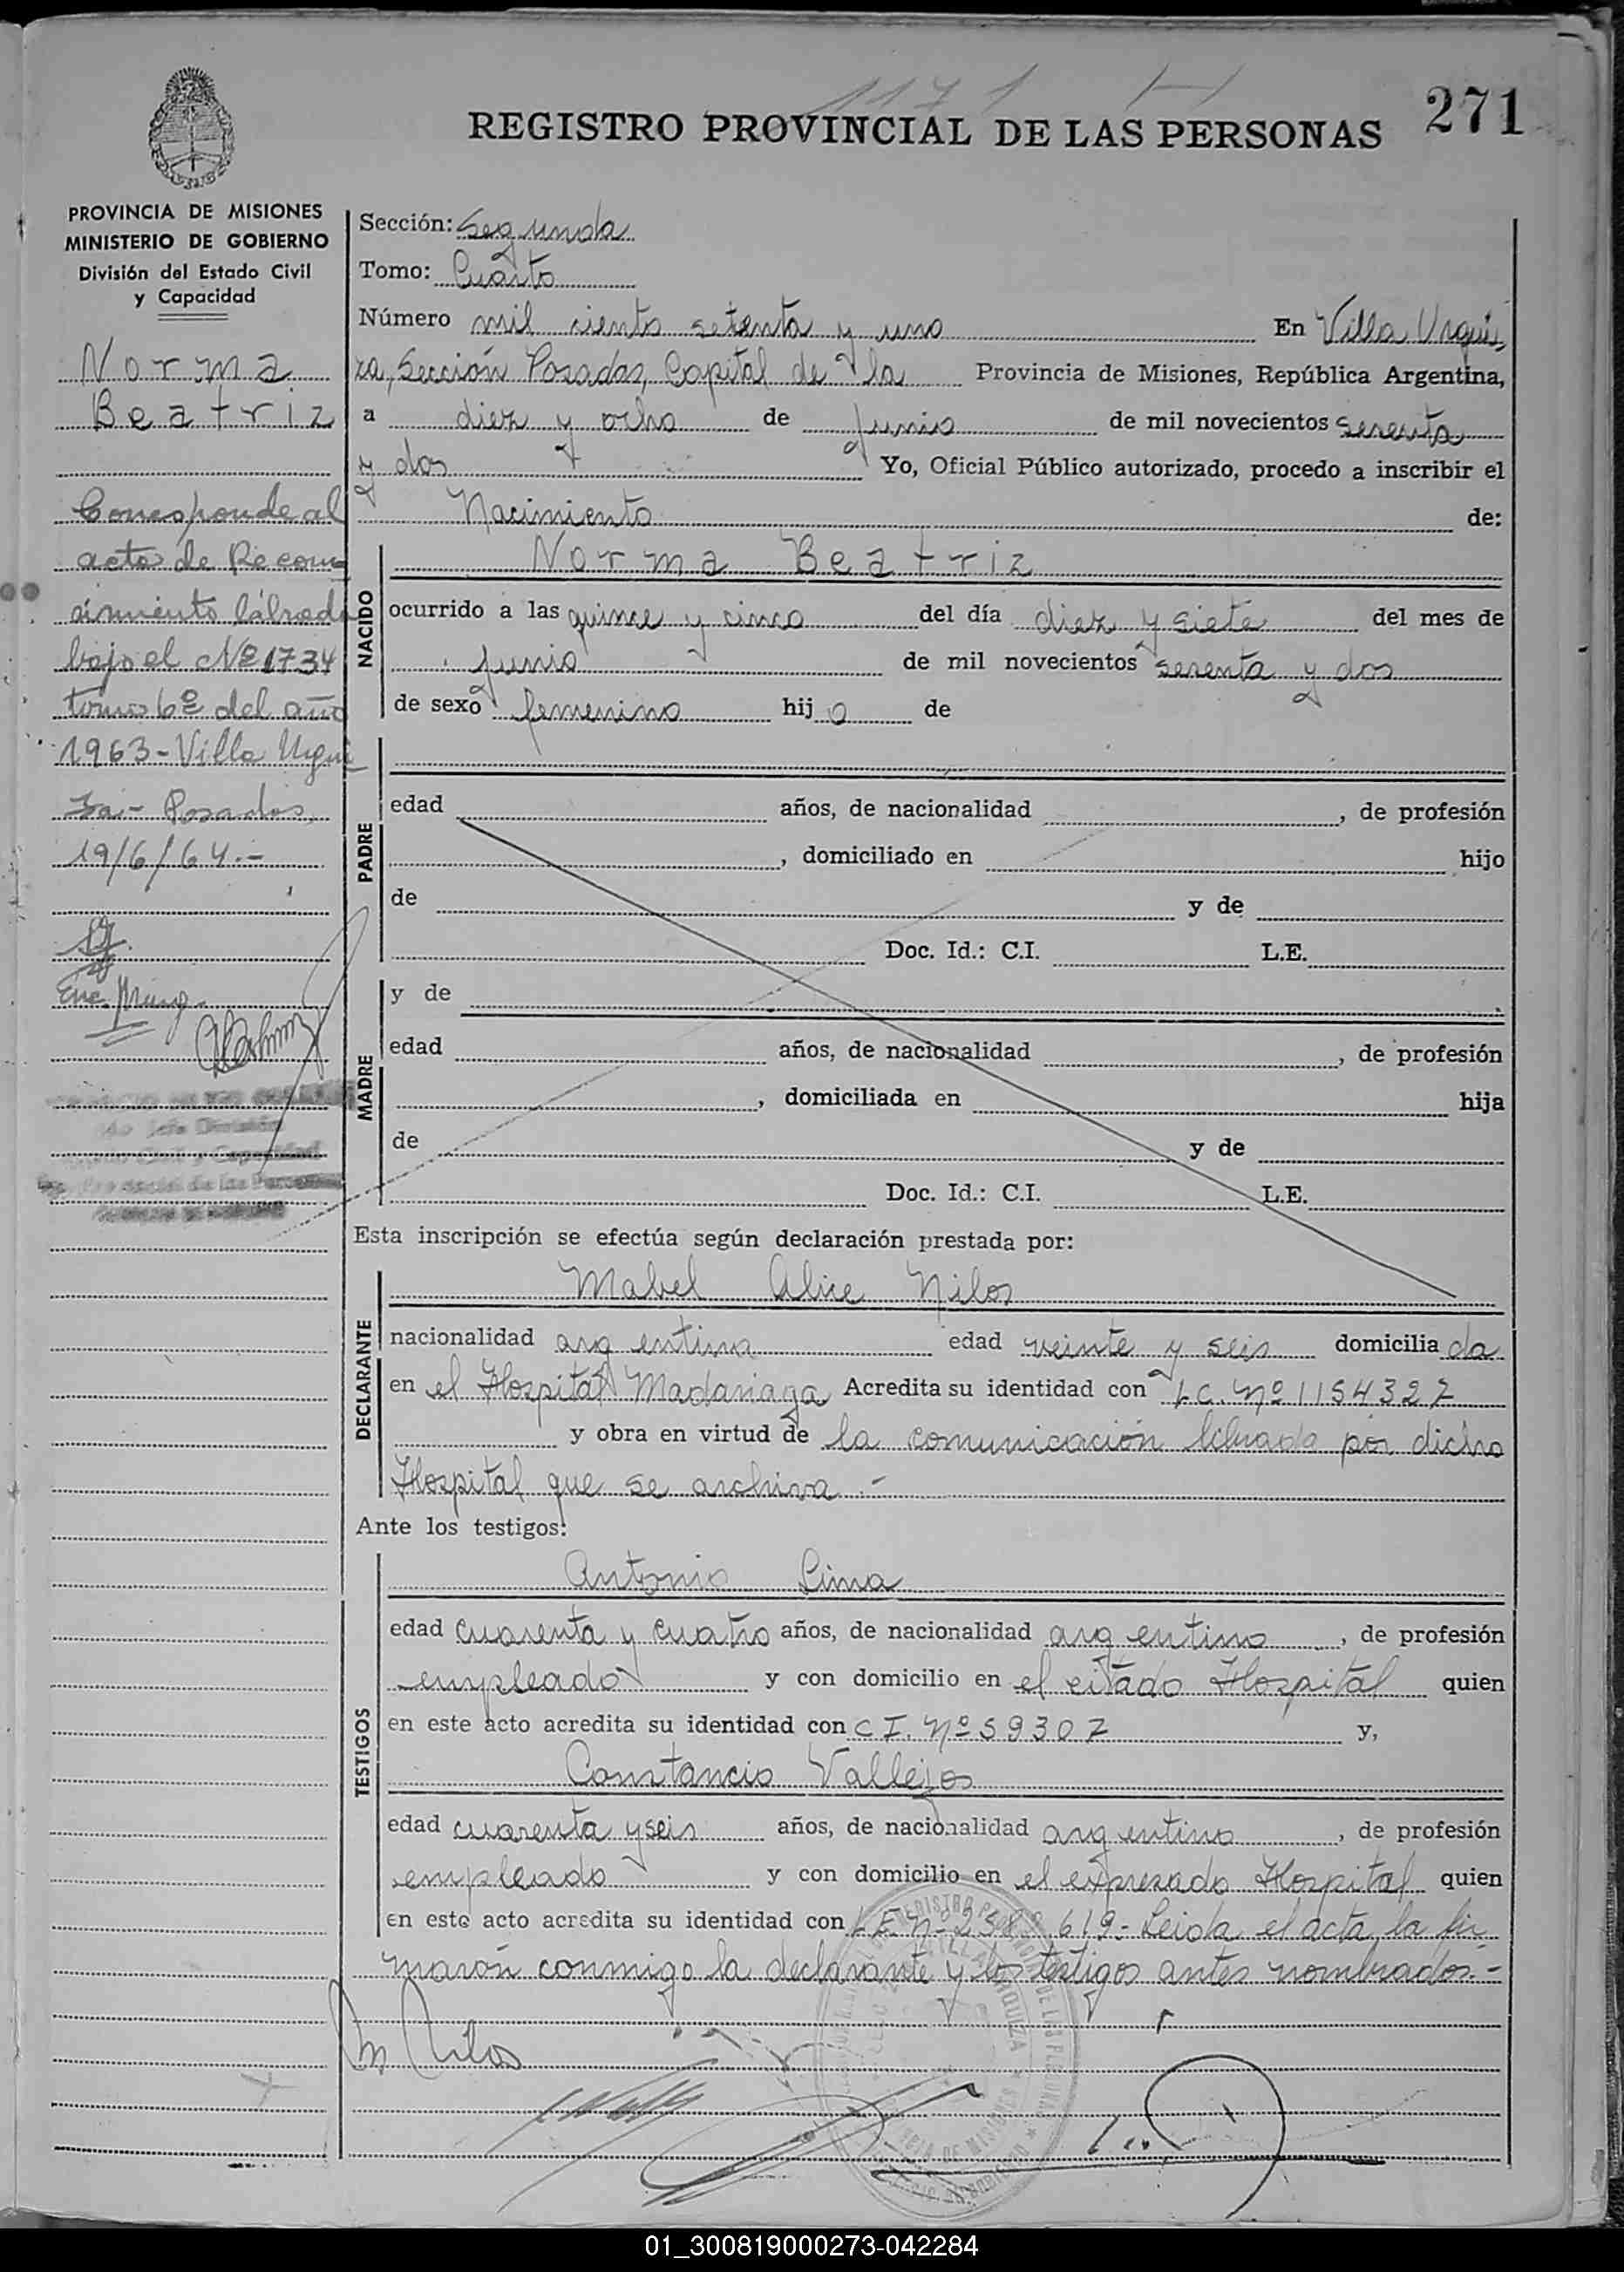 1171
271
REGISTRO PROVINCIAL DE LAS PERSONAS
PROVINCIA DE MISIONES
MINISTERIO DE GOBIERNO
División del Estado Civil
y Capacidad
Norma
Beatriz
Corresponde al
acta de Recono
cimiento labrada
bajo el Nº 1734
tomo 6º del año
1963 - Villa Urqui
za - Posadas,
19/6/64.-
Jefe División
Estado Civil y Capacidad
Provincial de las Personas
Sección: Segunda
Tomo: Cuarto
Número mil ciento setenta y uno En Villa Urqui
za, Sección Posadas, Capital de la Provincia de Misiones, República Argentina,
a diez y ocho de Junio de mil novecientos sesenta
y dos Yo, Oficial Público autorizado, procedo a inscribir el
Nacimiento de:
NACIDO
Norma Beatriz
ocurrido a las quince y cinco del día diez y siete del mes de
Junio de mil novecientos sesenta y dos
de sexo femenino hij a de
PADRE
edad años, de nacionalidad , de profesión
, domiciliado en hijo
de y de
Doc. Id.: C.I. L.E.
MADRE
y de
edad años, de nacionalidad , de profesión
, domiciliada en hija
de y de
Doc. Id.: C.I. L.E.
Esta inscripción se efectúa según declaración prestada por:
DECLARANTE
Mabel Alice Nilos
nacionalidad argentina edad veinte y seis domicilia da
en el Hospital Madariaga Acredita su identidad con L.C. Nº 1154327
y obra en virtud de la comunicación librada por dicho
Hospital que se archiva.-
Ante los testigos:
TESTIGOS
Antonio Lima
edad cuarenta y cuatro años, de nacionalidad argentino, de profesión
empleado y con domicilio en el citado Hospital quien
en este acto acredita su identidad con C.I. Nº 59307 y,
Constancio Vallejos
edad cuarenta y seis años, de nacionalidad argentino, de profesión
empleado y con domicilio en el expresado Hospital quien
en este acto acredita su identidad con L.E. Nº 619.- Leida el acta, la fir
maron conmigo la declarante y los testigos antes nombrados.-
M Nilos
01_300819000273-042284